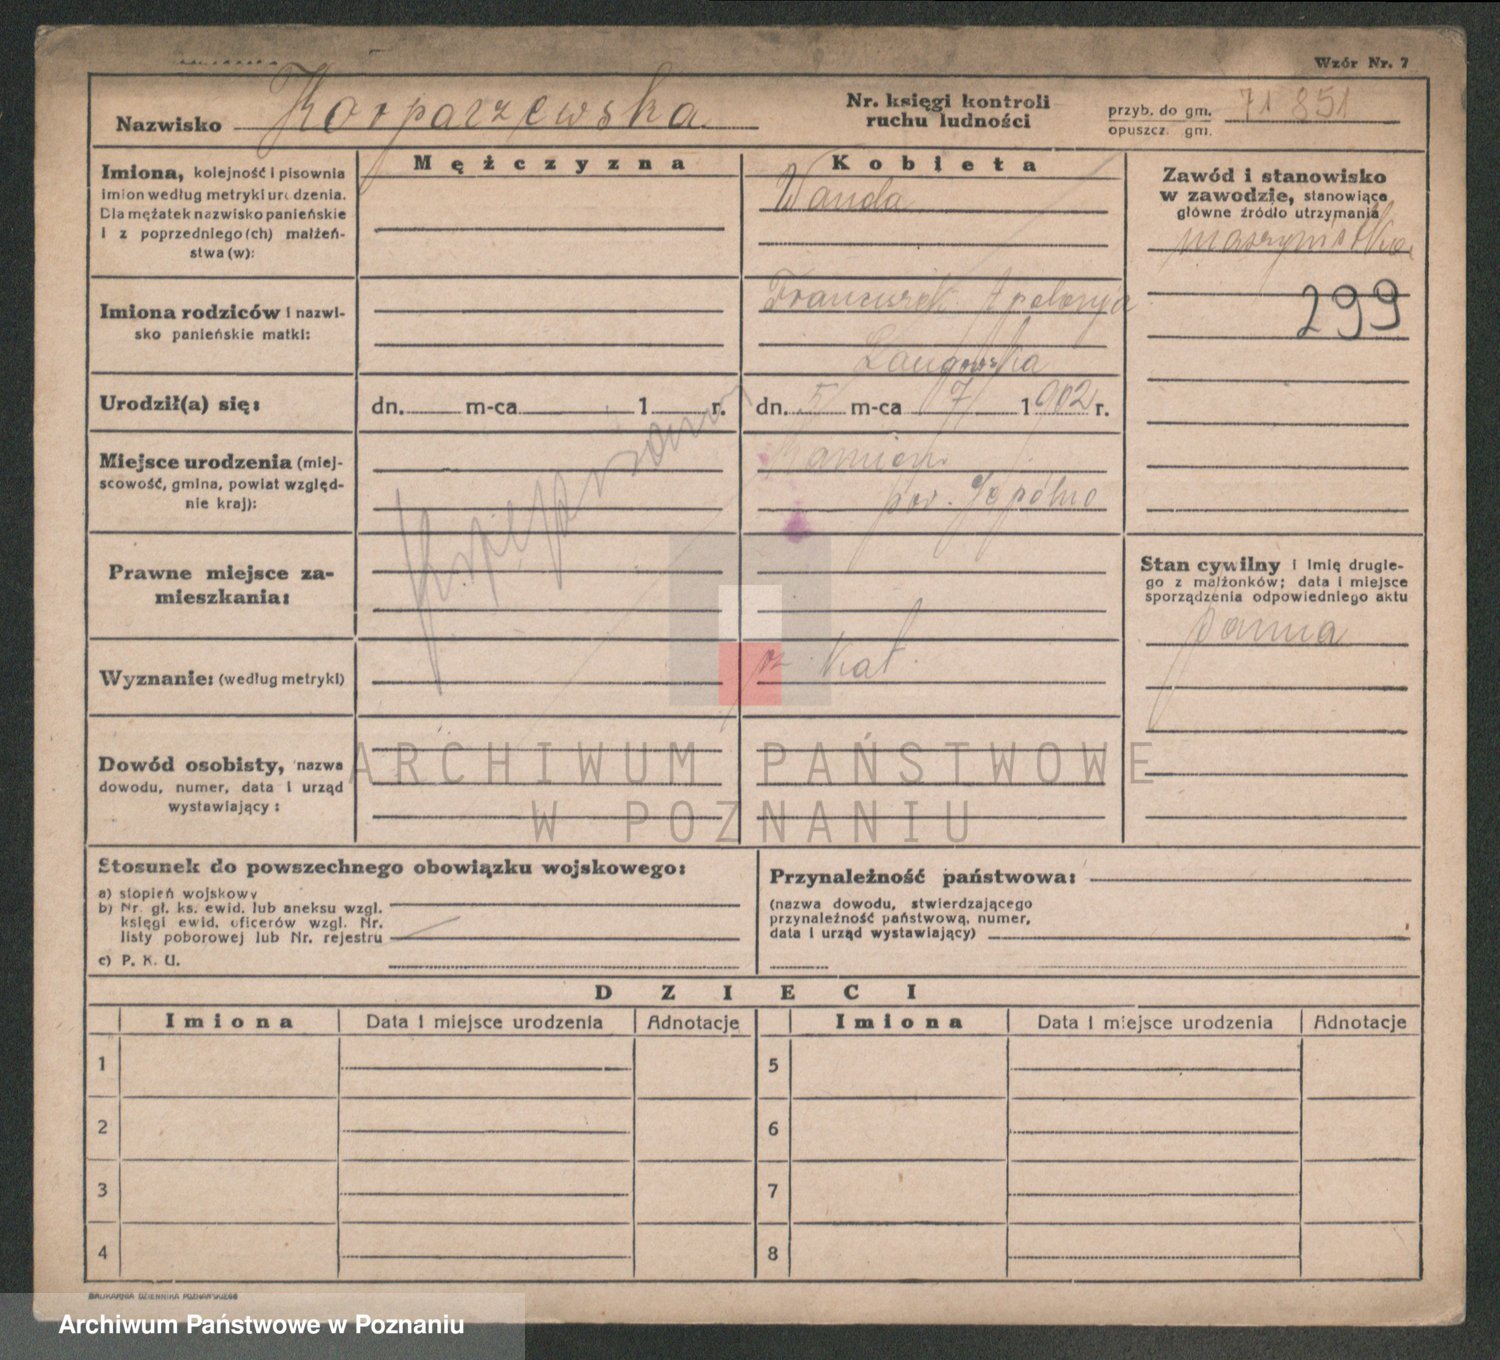 Wzór Nr. 7
Nazwisko Korpaczewska
Nr. księgi kontroli
ruchu ludności
przyb. do gm. 71 851
opuszcz. gm.
Imiona, kolejność i pisownia
imion według metryki urodzenia.
Dla mężatek nazwisko panieńskie
i z poprzedniego (ch) małżeń-
stwa (w):
Mężczyzna
Kobieta
Wanda
Zawód i stanowisko
w zawodzie, stanowiące
główne źródło utrzymania
maszynistka
299
Imiona rodziców i nazwi-
sko panieńskie matki:
Franciszek Apolonja
Langowska
Urodził(a) się:
dn. m-ca 1 r.
dn. 5 m-ca 7 1902 r.
Miejsce urodzenia (miej-
scowość, gmina, powiat względ-
nie kraj):
Kamień
pow. Sępólno
Prawne miejsce za-
mieszkania:
Stan cywilny i imię drugie-
go z małżonków; data i miejsce
sporządzenia odpowiedniego aktu
panna
Wyznanie: (według metryki)
rz kat.
Dowód osobisty, nazwa
dowodu, numer, data i urząd
wystawiający:
ARCHIWUM PAŃSTWOWE
W POZNANIU
Stosunek do powszechnego obowiązku wojskowego:
a) stopień wojskowy
b) Nr. gł. ks. ewid. lub aneksu wzgl.
księgi ewid. oficerów wzgl. Nr.
listy poborowej lub Nr. rejestru
c) P. K. U.
Przynależność państwowa:
(nazwa dowodu, stwierdzającego
przynależność państwową, numer,
data i urząd wystawiający)
DZIECI
Imiona Data i miejsce urodzenia Adnotacje Imiona Data i miejsce urodzenia Adnotacje
1 5
2 6
3 7
4 8
DRUKARNIA DZIENNIKA POZNAŃSKIEGO
Archiwum Państwowe w Poznaniu